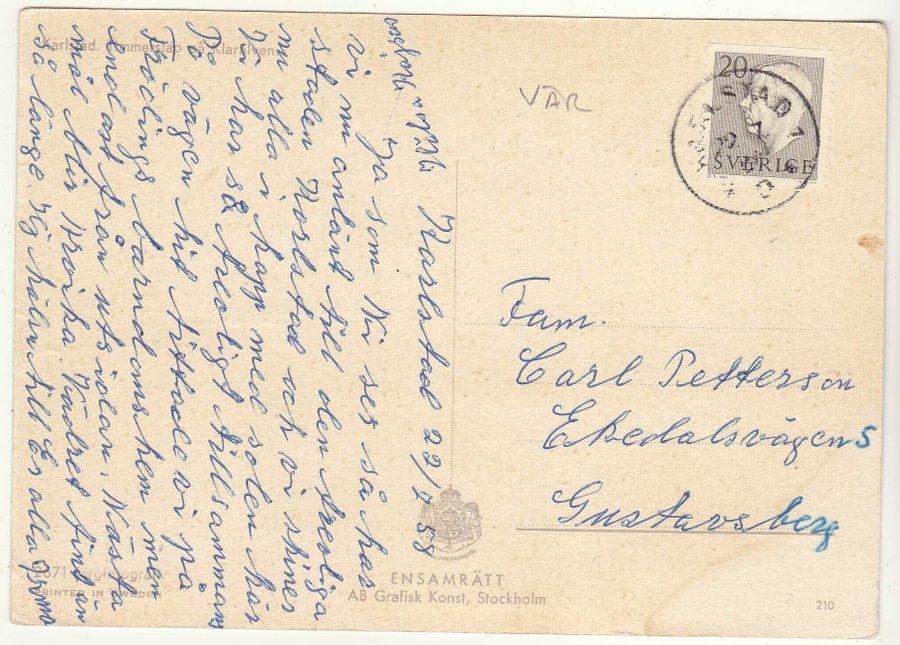 Karlstad. Timmersläp på Klarälven
VÄR
20
SVERIGE
KARLSTAD 1
Karlstad 22/7 58
Ja som Ni ser så har
vi nu anlänt till den trevliga
staden Karlstad och vi skiner
nu alla i kapp med solen här
Vi har så trevligt tillsammans
På vägen hit tittade vi på
Frödings barndomshem men
endast från utsidan. Nästa
mål blir Kroika. Vädret fint än
så länge. Hj hälsn till Er alla
Fam.
Carl Petterson
Ekedalsvägen 5
Gustavsberg
2671 Färgfotografi
PRINTED IN SWEDEN
ENSAMRÄTT
AB Grafisk Konst, Stockholm
210